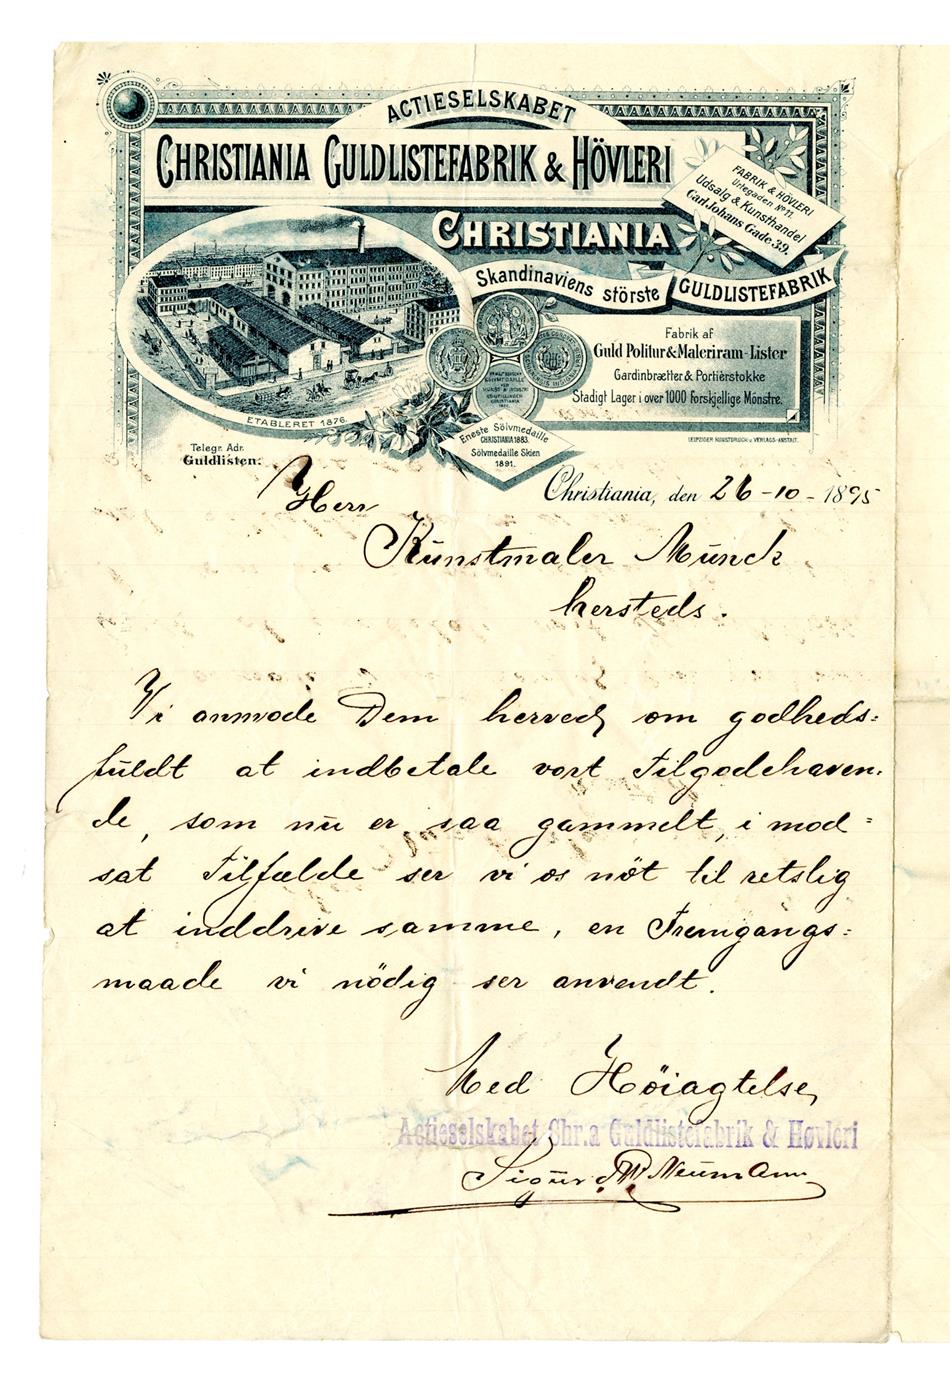 ACTIESELSKABET
CHRISTIANIA GULDLISTEFABRIK & HÖVLERI
CHRISTIANIA
FABRIK & HÖVLERI
Urtegaden No 11.
Udsalg & Kunsthandel
Carl Johans Gade 39.
Skandinaviens störste GULDLISTEFABRIK
Fabrik af
Guld Politur & Maleriram-Lister
Gardinbrætter & Portièrstokke
Stadigt Lager i over 1000 Forskjellige Mönstre.
ETABLERET 1876.
Eneste Sölvmedaille
CHRISTIANIA 1883.
Sölvmedaille Skien
1891.
LEIPZIGER KUNSTDRUCK u. VERLAGS-ANSTALT.
Telegr. Adr.
Guldlisten.
Christiania, den 26-10-1895
Herr
Kunstmaler Munck
hersteds.
Vi anmode Dem herved om godheds=
fuldt at indbetale vort Tilgodehaven.
de, som nu er saa gammelt, i mod=
sat Tilfælde ser vi os nöt til retslig
at inddrive samme, en Fremgangs=
maade vi nödig ser anvendt.
Med Höiagtelse
Actieselskabet Chr.a Guldlistefabrik & Høvleri
Sigurd Neumann